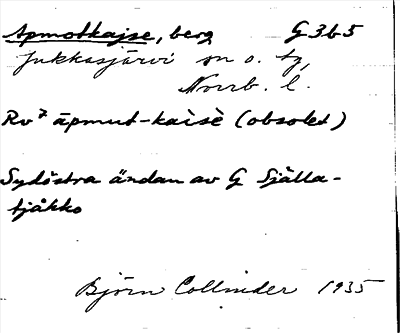 Apmotkajse, berg G3b5
Jukkasjärvi sn o. tg,
Norrb. l.
Rv⁷ āpmut-kaìsè (obsolet)
Sydöstra ändan av G Själla-
tjåkko
Björn Collinder 1935